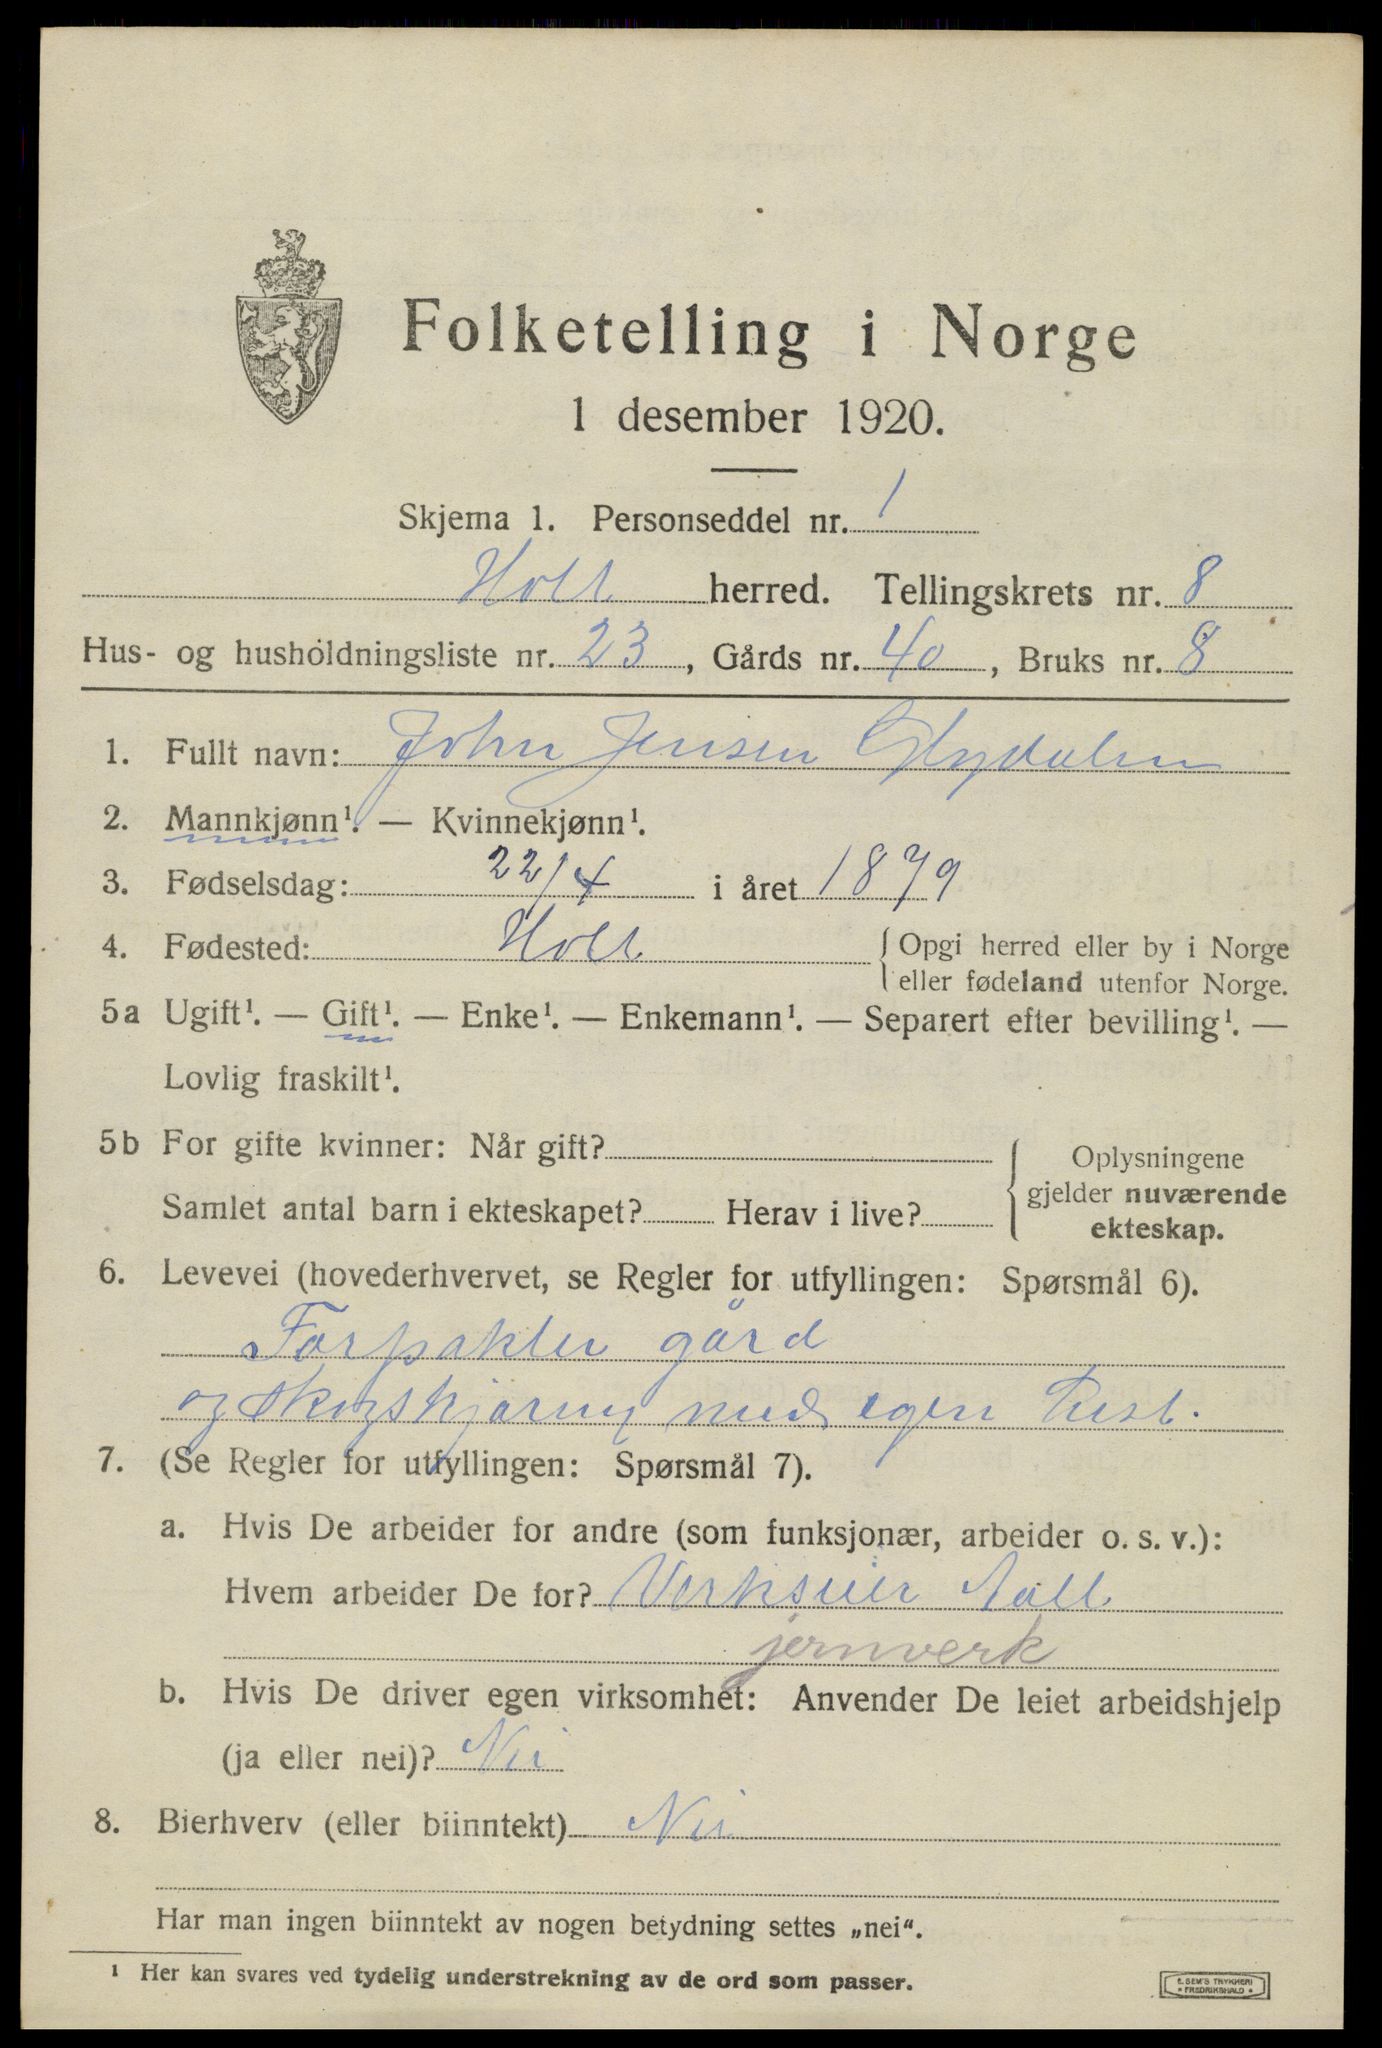 Folketelling i Norge
1 desember 1920.
Skjema 1. Personseddel nr. 1
Holt herred. Tellingskrets nr. 8
Hus- og husholdningsliste nr. 23, Gårds nr. 40, Bruks nr. 8
1. Fullt navn: John Jensen
2. Mannkjønn¹. — Kvinnekjønn¹.
3. Fødselsdag: 22/4 i året 1879
4. Fødested: Holt { Opgi herred eller by i Norge
eller fødeland utenfor Norge.
5a Ugift¹. — Gift¹. — Enke¹. — Enkemann¹. — Separert efter bevilling¹. —
Lovlig fraskilt¹.
5b For gifte kvinner: Når gift?
Samlet antal barn i ekteskapet? Herav i live?
{ Oplysningene
gjelder nuværende
ekteskap.
6. Levevei (hovederhvervet, se Regler for utfyllingen: Spørsmål 6).
Forpakter gård
og skogskjøring med egen hest.
7. (Se Regler for utfyllingen: Spørsmål 7).
a. Hvis De arbeider for andre (som funksjonær, arbeider o. s. v.):
Hvem arbeider De for? Verkseier Aall
jernverk
b. Hvis De driver egen virksomhet: Anvender De leiet arbeidshjelp
(ja eller nei)? Nei
8. Bierhverv (eller biinntekt) Nei
Har man ingen biinntekt av nogen betydning settes „nei“.
¹ Her kan svares ved tydelig understrekning av de ord som passer.
E. SEM'S TRYKKERI
* FREDRIKSHALD *